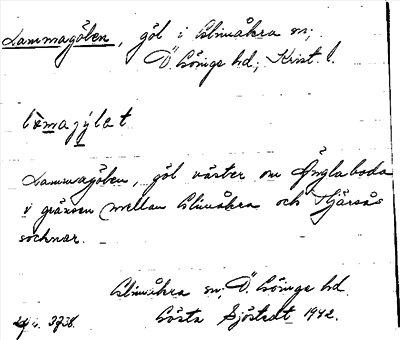 Lammagölen, göl i Glimåkra sn;
Ö. Göinge hd; Krist. l.
lamagýlet
Lammagölen, göl väster om Änglaboda
i gränsen mellan Glimåkra och Hjärsås
socknar.
Glimåkra sn, Ö. Göinge hd
Gösta Sjöstedt 1942.
3738.